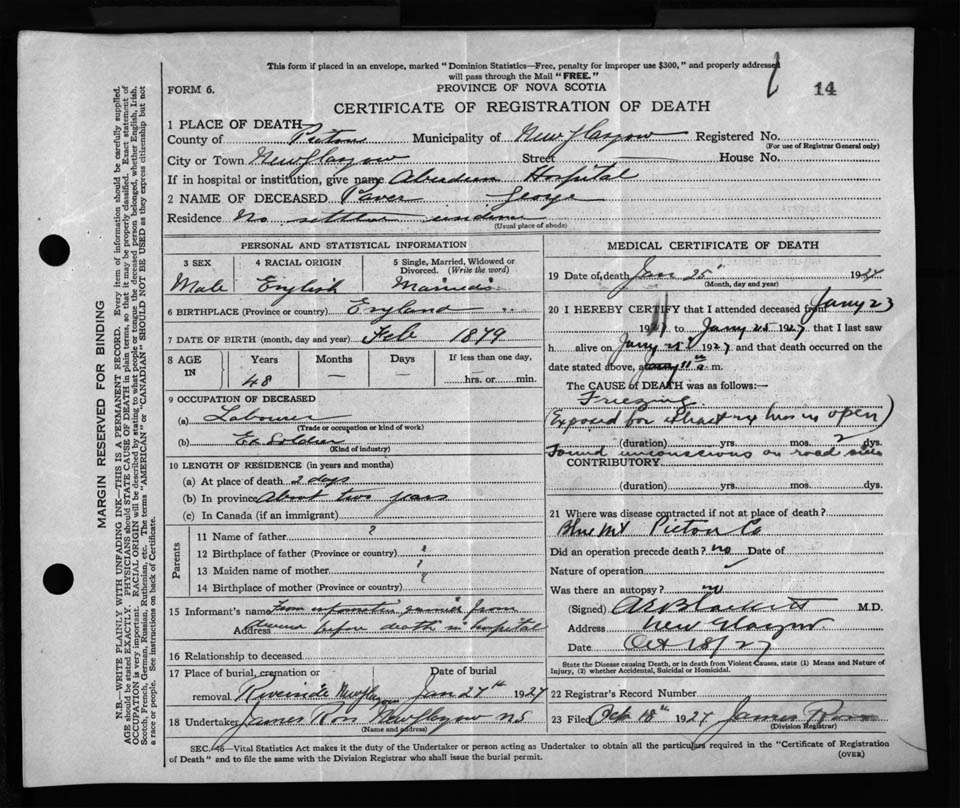 This form if placed in an envelope, marked "Dominion Statistics—Free, penalty for improper use $300," and properly addressed
will pass through the Mail "FREE."
FORM 6.
PROVINCE OF NOVA SCOTIA
14
CERTIFICATE OF REGISTRATION OF DEATH
1 PLACE OF DEATH—
County of Pictou Municipality of New Glasgow Registered No.
(For use of Registrar General only)
City or Town New Glasgow Street House No.
If in hospital or institution, give name Aberdeen Hospital
2 NAME OF DECEASED Paver George
Residence No settled
(Usual place of abode)
PERSONAL AND STATISTICAL INFORMATION
3 SEX 4 RACIAL ORIGIN 5 Single, Married, Widowed or
Divorced. (Write the word)
Male English Married
6 BIRTHPLACE (Province or country) England
7 DATE OF BIRTH (month, day and year) Feb 1879
8 AGE IN Years Months Days If less than one day,
48 — — hrs. or min.
9 OCCUPATION OF DECEASED
(a) Labourer
(Trade or occupation or kind of work)
(b) Ex Soldier
(Kind of industry)
10 LENGTH OF RESIDENCE (in years and months)
(a) At place of death 2 days
(b) In province About two years
(c) In Canada (if an immigrant)
Parents
11 Name of father ?
12 Birthplace of father (Province or country) ?
13 Maiden name of mother ?
14 Birthplace of mother (Province or country) ?
15 Informant's name From information from
Address before death in hospital
16 Relationship to deceased
17 Place of burial, cremation or Date of burial
removal Riverside New Glasgow Jan 27th 1927
18 Undertaker James Ross New Glasgow NS
(Name and address)
MEDICAL CERTIFICATE OF DEATH
19 Date of death Jan 25 1927
(Month, day and year)
20 I HEREBY CERTIFY that I attended deceased from Jany 23
1927 to Jany 25 1927 that I last saw
h alive on Jany 25 1927 and that death occurred on
date stated above, at 11 a. m.
The CAUSE of DEATH was as follows:—
Freezing
(Exposed for hrs in open)
(duration) yrs. mos. 2 dys.
Found unconscious on road side
CONTRIBUTORY
(duration) yrs. mos. dys.
21 Where was disease contracted if not at place of death?
Blue Mt Pictou Co
Did an operation precede death? no Date of
Nature of operation
Was there an autopsy? no
(Signed) M.D.
Address New Glasgow
Date Oct 18/27
State the Disease causing Death, or in death from Violent Causes, state (1) Means and Nature of
Injury, (2) whether Accidental, Suicidal or Homicidal.
22 Registrar's Record Number
23 Filed Oct 18th 1927 James Ross
(Division Registrar)
SEC. 46—Vital Statistics Act makes it the duty of the Undertaker or person acting as Undertaker to obtain all the particulars required in the "Certificate of Registration
of Death" and to file the same with the Division Registrar who shall issue the burial permit.
(OVER)
MARGIN RESERVED FOR BINDING
N.B.—WRITE PLAINLY WITH UNFADING INK—THIS IS A PERMANENT RECORD. Every item of information should be carefully supplied.
AGE should be stated EXACTLY. PHYSICIANS should STATE CAUSE OF DEATH in plain terms, so that it may be properly classified. Exact statement of
OCCUPATION is very important. RACIAL ORIGIN will be described by stating to what people or tongue the deceased person belonged, whether English, Irish,
Scotch, French, German, Russian, Ruthenian, etc. The terms "AMERICAN" or "CANADIAN" SHOULD NOT BE USED as they express citizenship but not
a race or people. See instructions on back of Certificate.